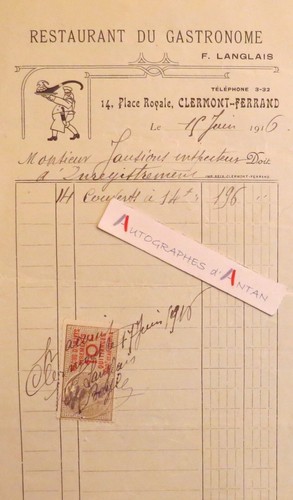 RESTAURANT DU GASTRONOME
F. LANGLAIS
TÉLÉPHONE 3-22
14, Place Royale, CLERMONT-FERRAND
Le 15 Juin 1916
Monsieur Jansions inspecteur Doit
d'Enregistrement
IMP. CLERMONT-FERRAND
14 Couverts à 14 f 196
AUTOGRAPHES d'ANTAN
Clermont le 17 Juin 1916
Langlais